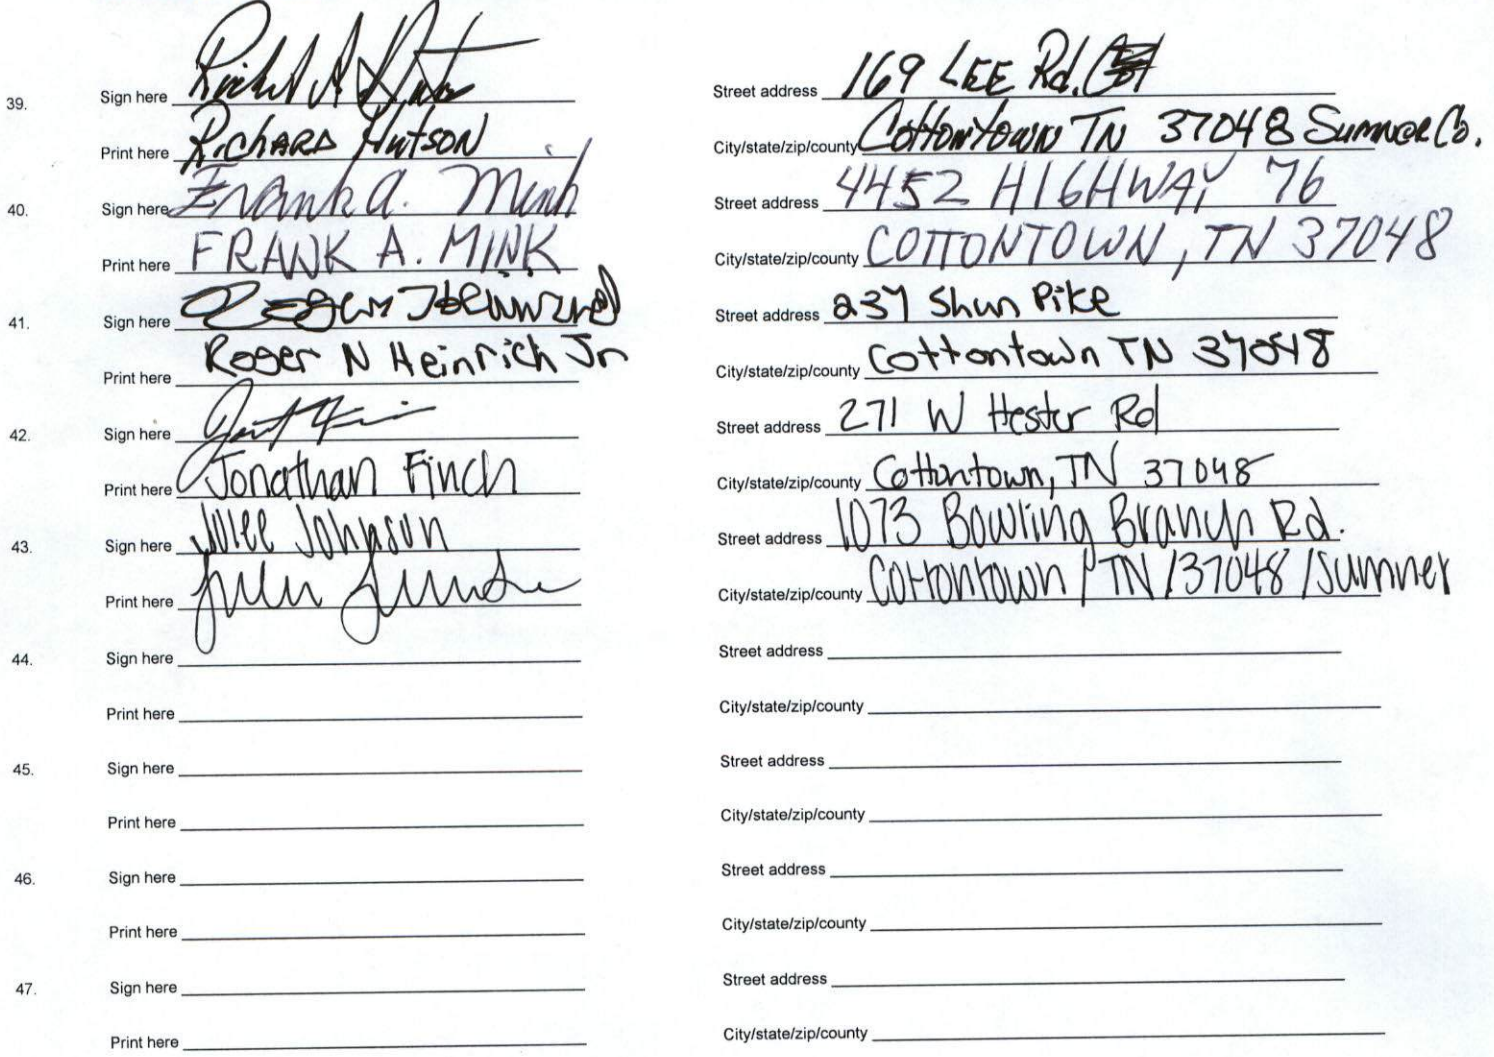 39. Sign here Richard A Hutson Street address 169 LEE Rd.
Print here RichARD HutSON City/state/zip/county CottonTown TN 37048 SUMNER Co.
40. Sign here Frank A. Mink Street address 4452 HIGHWAY 76
Print here FRANK A. MINK City/state/zip/county COTTONTOWN, TN 37048
41. Sign here Street address 237 Shun Pike
Print here Roger N Heinrich Jr City/state/zip/county Cottontown TN 37048
42. Sign here Street address 271 W Hester Rd
Print here Jonathan Finch City/state/zip/county Cottontown, TN 37048
43. Sign here Jolee Johnson Street address 1073 Bowling Branch Rd.
Print here City/state/zip/county Cottontown / TN / 37048 / Sumner
44. Sign here Street address
Print here City/state/zip/county
45. Sign here Street address
Print here City/state/zip/county
46. Sign here Street address
Print here City/state/zip/county
47. Sign here Street address
Print here City/state/zip/county